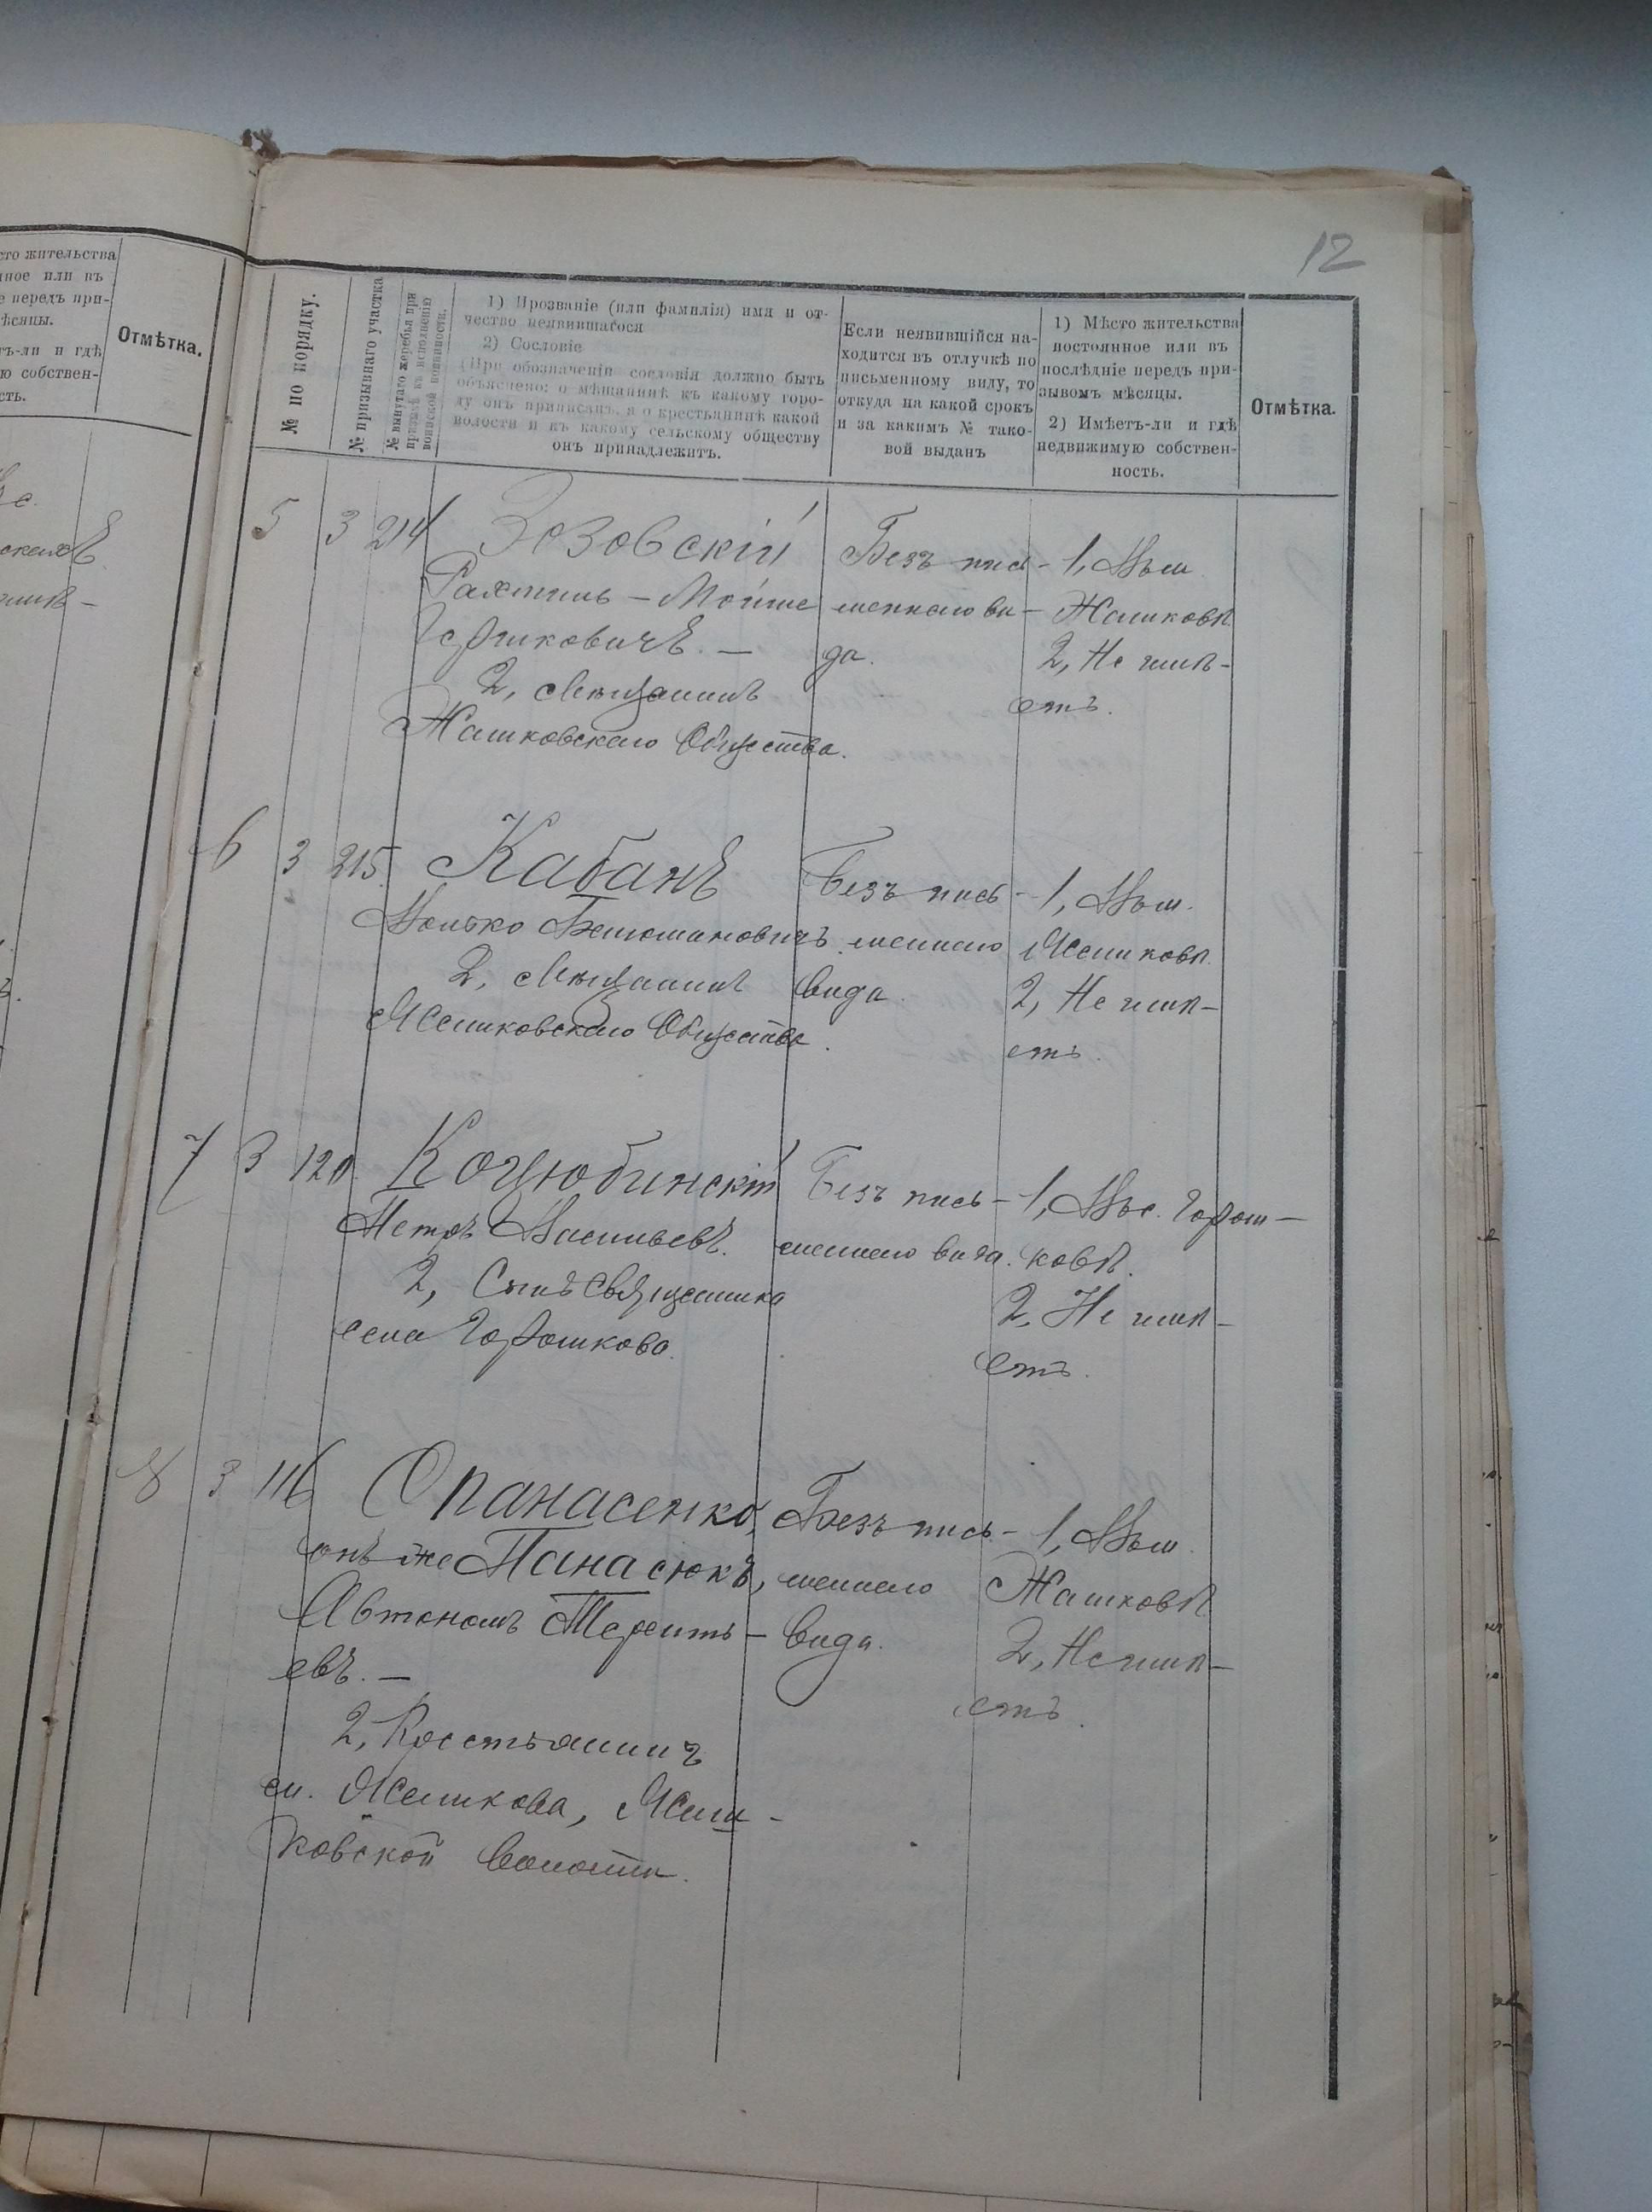 12
сто жительства
нное или въ
е передъ при-
ѣсяцы.
тъ-ли и гдѣ
ю собствен-
сть.
Отмѣтка.
№ по порядку.
№ призывнаго участка
№ вынутаго жеребья при
призывѣ къ исполненію
воинской повинности.
1) Прозваніе (или фамилія) имя и от-
чество неявившагося
2) Сословіе
(При обозначеніи сословія должно быть
объяснено: о мѣщанинѣ къ какому горо-
ду онъ приписанъ, а о крестьянинѣ какой
волости и къ какому сельскому обществу
онъ принадлежитъ.
Если неявившійся на-
ходится въ отлучкѣ по
письменному виду, то
откуда на какой срокъ
и за какимъ № тако-
вой выданъ
1) Мѣсто жительства
постоянное или въ
послѣдніе передъ при-
зывомъ мѣсяцы.
2) Имѣетъ-ли и гдѣ
недвижимую собствен-
ность.
Отмѣтка.
5 3 214 Зозовскій
Рахмиль - Мойше
Гершковичъ. -
2, Мѣщанинъ
Жашковскаго Общества.
Безъ пись-
меннаго ви-
да.
1, Въ м.
Жашковѣ
2, Не имѣ-
етъ.
6 3 215. Кабанъ
Волько Беньюминовичъ
2, Мѣщанинъ
Жашковскаго Общества.
Безъ пись-
меннаго
вида.
1, Въ м.
Жашковѣ.
2, Не имѣ-
етъ.
7 3 120. Коцюбинскій
Петръ Васильевъ.
2, Сынъ Священника
села Горошкова.
Безъ пись-
меннаго вида.
1, Въ с. Горош-
ковѣ.
2, Не имѣ-
етъ.
8 3 116 Опанасенко,
онъ же Панасюкъ,
Автономъ Теренть-
евъ. -
2, Крестьянинъ
м. Жашкова, Жаш-
ковской волости.
Безъ пись-
меннаго
вида.
1, Въ м.
Жашковѣ
2, Не имѣ-
етъ.